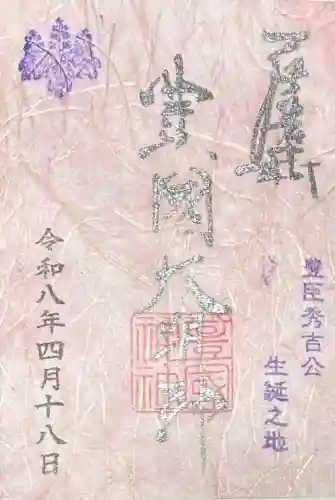 奉拝
豊臣秀吉公
生誕之地
豊國大明神
豊國神社
令和八年四月十八日